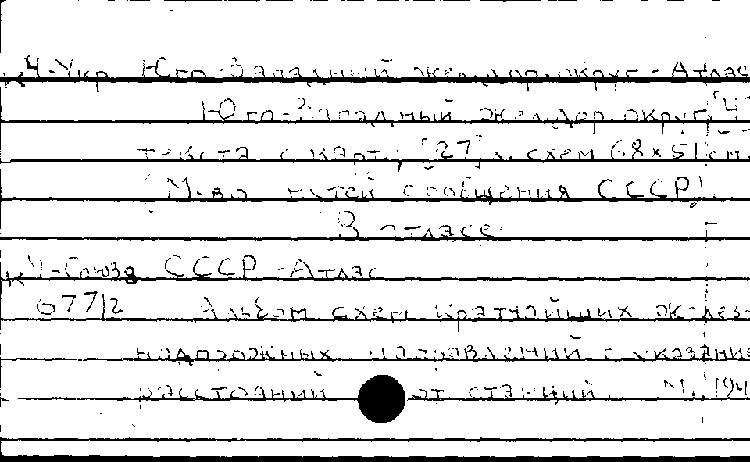 К 4-Укр Юго-Западный жел.дор. округ - Атлас
Юго-Западный жел.дор. округ. [4
текста с карт., [27] л. схем 68х51 см.
(М-во путей сообщения СССР).
В атласе:
К 4-Союзв СССР - Атлас
677/2 Альбом схем кратчайших желез-
нодорожных направлений с указание
расстояний от станций. М., 194